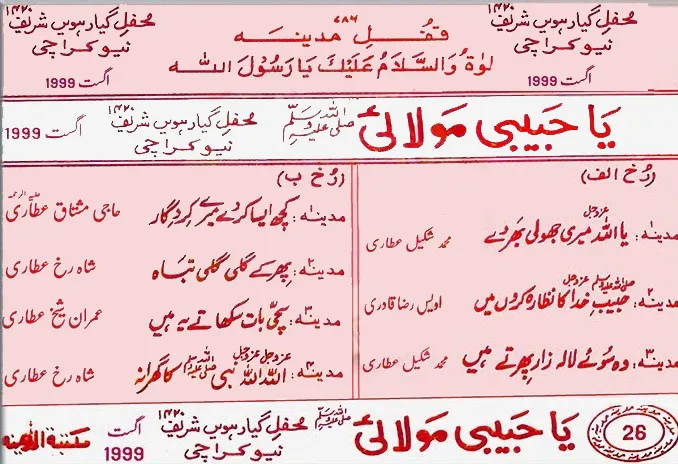 محفلِ گیارہویں شریف ۱۴۲۰
نیو کراچی
اگست 1999
۷۸۶
قفلِ مدینہ
لوٰۃُ وَالسَّلَامُ عَلَیْکَ یَا رَسُوْلَ اللّٰه
محفلِ گیارہویں شریف ۱۴۲۰
نیو کراچی
اگست 1999
یَا حَبِیبِی مَولَائی صلی اللہ علیہ وسلم
محفلِ گیارہویں شریف ۱۴۲۰
نیو کراچی
اگست 1999
(رُخ الف)
مدینہ۱: یا اللہ عزوجل میری جھولی بھر دے محمد شکیل عطاری
مدینہ۲: حبیبِ خدا صلی اللہ علیہ وسلم عزوجل کا نظارہ کروں میں اویس رضا قادری
مدینہ۳: وہ سوئے لالہ زار پھرتے ہیں محمد شکیل عطاری
(رُخ ب)
مدینہ۱: کچھ ایسا کر دے میرے کردگار حاجی مشتاق عطاری علیہ الرحمہ
مدینہ۲: پھر کے گلی گلی تباہ شاہ رخ عطاری
مدینہ۳: سچی بات سکھاتے یہ ہیں عمران شیخ عطاری
مدینہ۴: اللہ عزوجل اللہ عزوجل نبی صلی اللہ علیہ وسلم کا گھرانہ شاہ رخ عطاری
26
یَا حَبِیبِی مَولَائی صلی اللہ علیہ وسلم
محفلِ گیارہویں شریف ۱۴۲۰
نیو کراچی
اگست 1999
مکتبۃ المدینہ